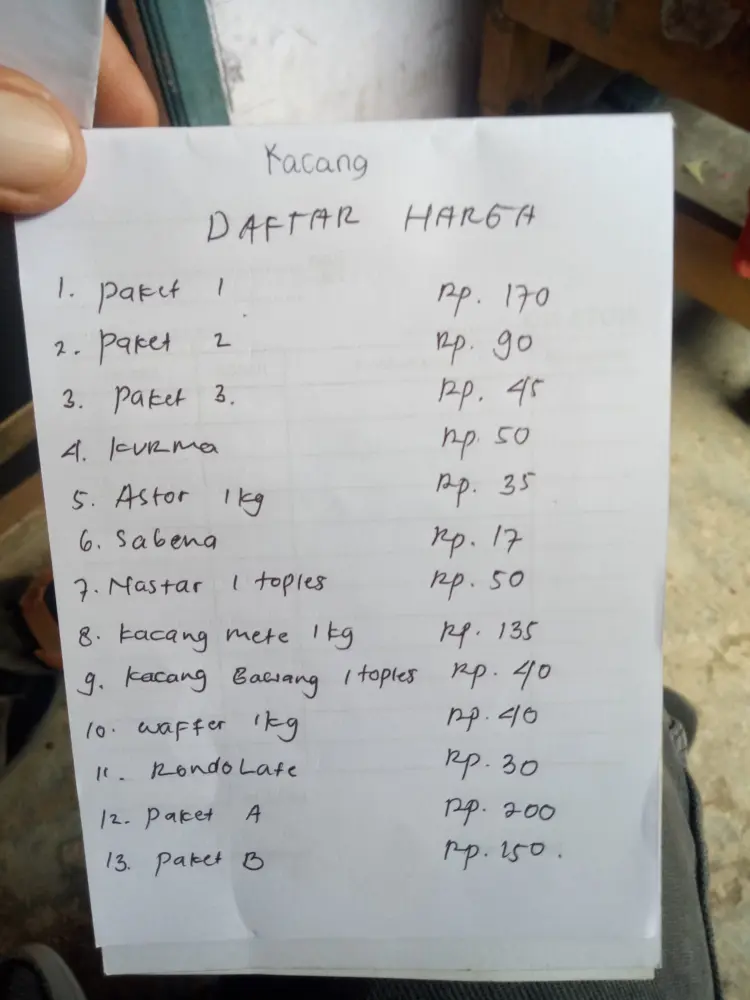 Kacang
DAFTAR HARGA
1. Paket 1 Rp. 170
2. Paket 2 Rp. 90
3. Paket 3. Rp. 45
4. KURMA Rp. 50
5. Astor 1 kg Rp. 35
6. Sabena Rp. 17
7. Nastar 1 toples Rp. 50
8. kacang mete 1 kg Rp. 135
9. kacang Bawang 1 toples Rp. 40
10. waffer 1 kg Rp. 40
11. RondoLate Rp. 30
12. Paket A Rp. 200
13. Paket B Rp. 150.